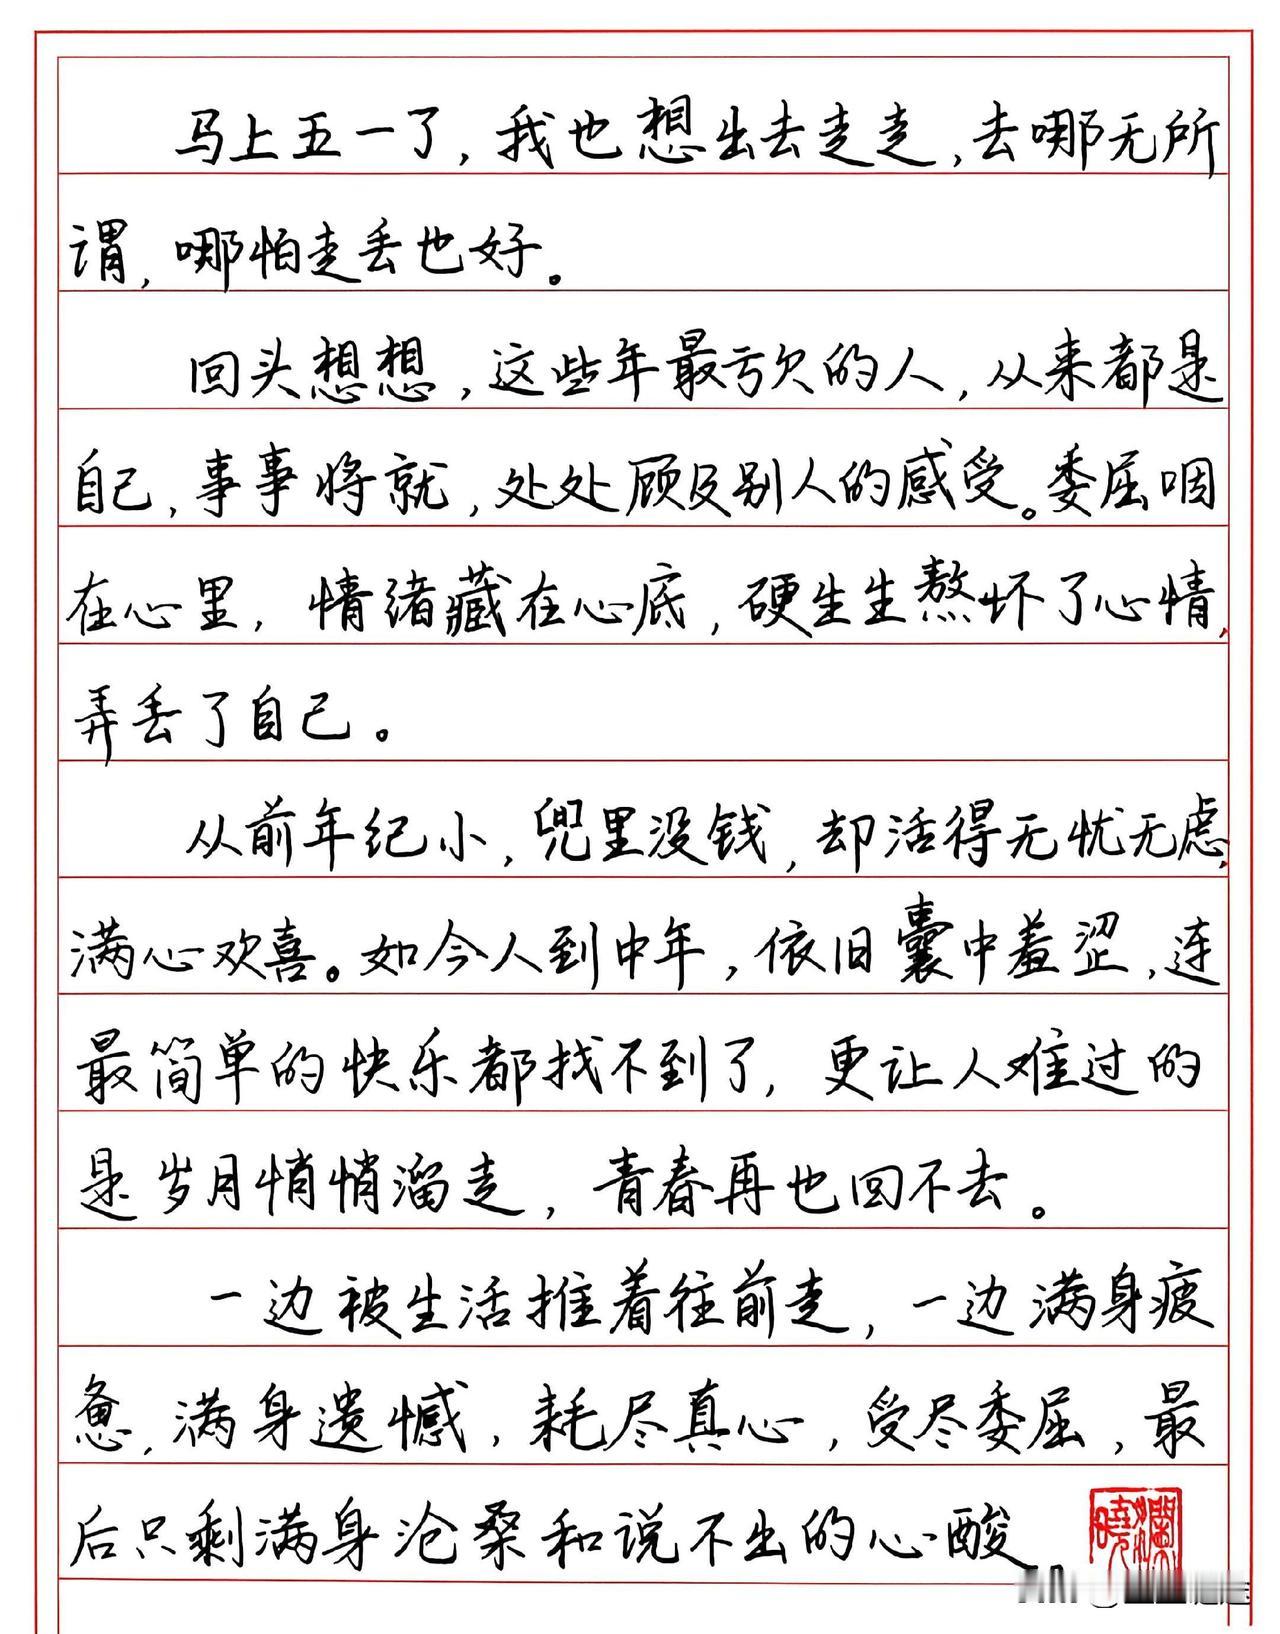 马上五一了，我也想出去走走，去哪无所
谓，哪怕走丢也好。
回头想想，这些年最亏欠的人，从来都是
自己，事事将就，处处顾及别人的感受。委屈咽
在心里，情绪藏在心底，硬生生熬坏了心情，
弄丢了自己。
从前年纪小，兜里没钱，却活得无忧无虑，
满心欢喜。如今人到中年，依旧囊中羞涩，连
最简单的快乐都找不到了，更让人难过的
是岁月悄悄溜走，青春再也回不去。
一边被生活推着往前走，一边满身疲
惫，满身遗憾，耗尽真心，受尽委屈，最
后只剩满身沧桑和说不出的心酸。